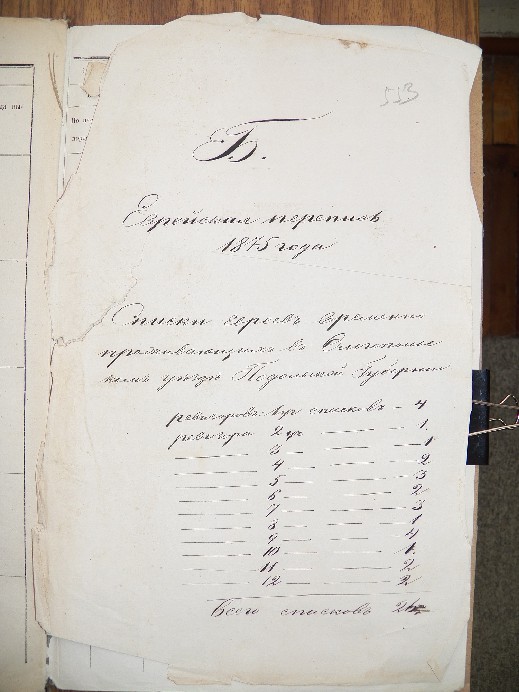 553
Б.
Еврейская перепись
1875 года
Списки евреевъ временно
проживающихъ въ Ольгополь
скомъ уѣздѣ Подольской Губернии
ревизоровъ 1 уч списковъ — 4
ревизора 2 уч — 1
3 — 1
4 — 2
5 — 3
6 — 2
7 — 3
8 — 1
9 — 4
10 — 1.
11 — 2
12 — 2
Всего списковъ